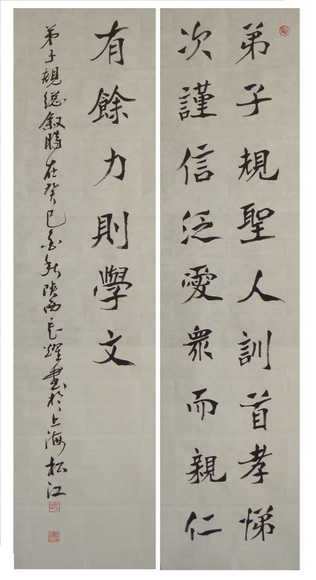 弟子規聖人訓首孝悌
次謹信泛愛眾而親仁
有餘力則學文
弟子規總敘時在癸巳金秋陝西長耀書於上海松江